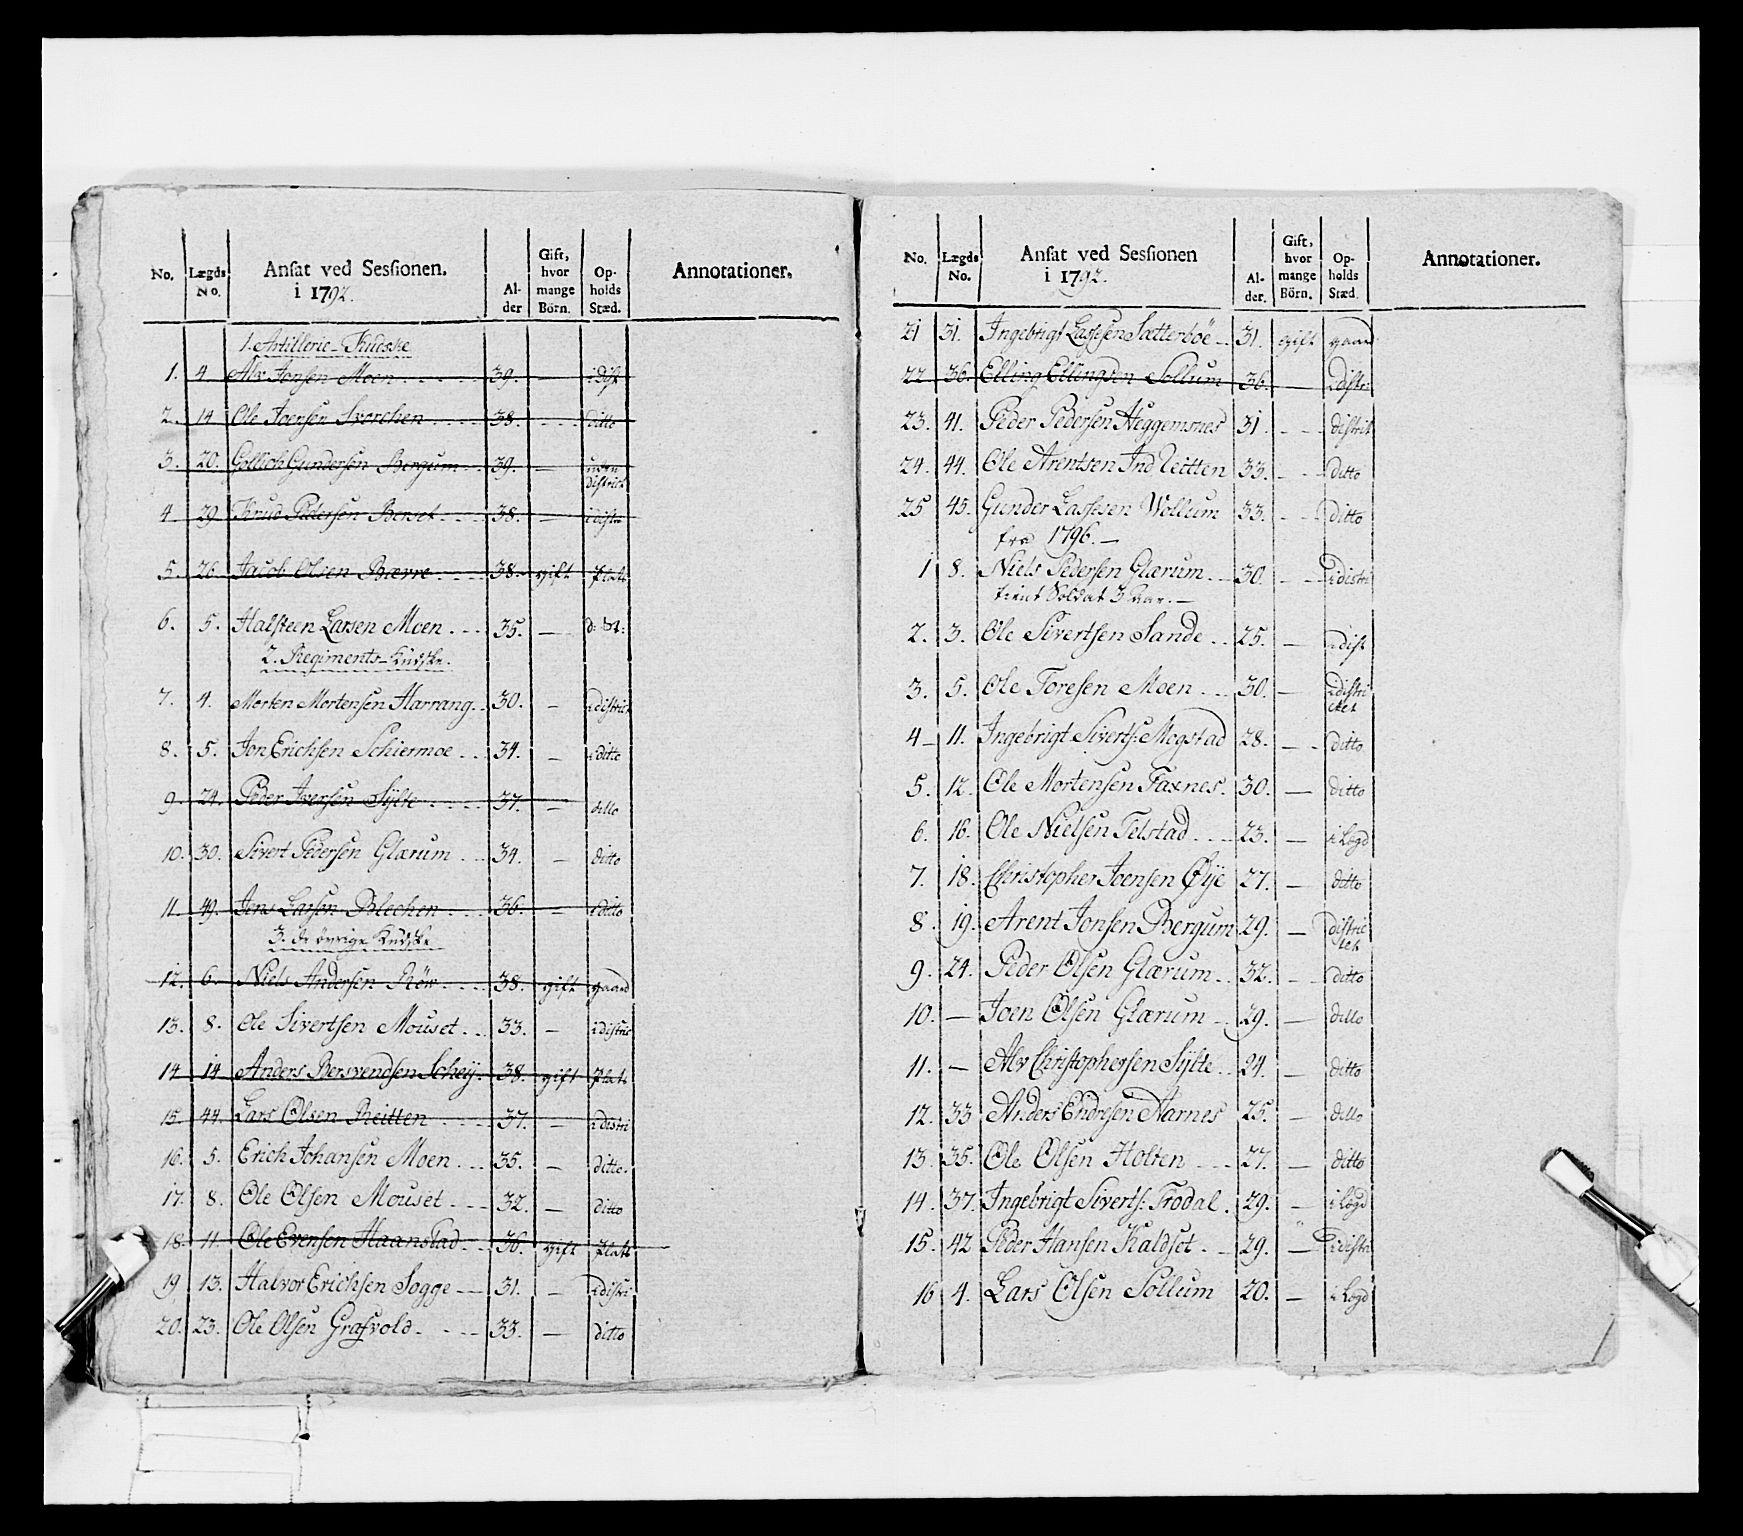 No. Lægds No. Ansat ved Sessionen. i 1792. Alder Gift, hvor mange Börn. Opholds Stæd. Annotationer.
1. Artillerie-Kudske
1. 4 Alv Jonsen Moen 39. — i dist
2. 14 Ole Joensen Svorchen 38. — ditto
3. 20. Gollich Gundersen Bergum 39. — uden district
4 29 Knud Pedersen Berset 38. — i distri
5. 26. Jacob Olsen Bævre 38. gift Plats
6. 5. Halsteen Larsen Moen 35. —
2. Regiments-Kudske.
7. 4. Morten Mortensen Harrang. 30. — i district
8. 5. Jon Erichsen Schiermoe 34. — i ditto
9. 24. Peder Iversen Sÿlte 37. — ditto
10. 30. Sivert Pedersen Glærum 34. — ditto
11. 49. Jens Larsen Blechen 36. — i ditto
3. de övrige Kudske
12. 6. Niels Andersen Rör 38. gift gaard
13. 8. Ole Sivertsen Mouset 33. — i distric
14 14 Anders Bersvendsen Scheÿ. 38. gift Plats
15. 44. Lars Olsen Reitten 37. — i distri
16. 5. Erich Johansen Moen 35. — ditto.
17. 8. Ole Olsen Mouset 32. — ditto
18. 11. Ole Evensen Haanstad 36. gift Plats
19 13. Halvor Erichsen Sogge 31. — i distri
20. 23. Ole Olsen Grafvold 33. — ditto
No. Lægds No. Ansat ved Sessionen i 1792. Alder. Gift, hvor mange Börn. Opholds Stæd. Annotationer.
21 31. Ingebrigt Lassesen Sætterböe 31. gift gaard
22 36. Elling Ellingsen Sollum 36. — i distri
23. 41. Peder Pedersen Heggemsnes 31. — distrit
24. 44. Ole Arentsen Ind Reitten 33. — ditto
25 45. Gunder Lassesen Wollum 33. — ditto
fra 1796. —
1 8. Niels Pedersen Glærum 30. — i distri
tient Soldat 3 Aar. —
2. 3. Ole Sivertsen Sande 25. — i dist
3. 5. Ole Toresen Moen 30. — i distri ctet
4 — 11. Ingebrigt Siverts: Mogstad 28. — ditto
5. 12. Ole Mortensen Faxnes. 30. — ditto
6. 16. Ole Nielsen Telstad 23. — i Lægd
7. 18. Christopher Joensen Øye 27. — ditto
8. 19. Arent Jonsen Bergum 29. — distric tet
9. 24. Peder Olsen Glærum 32. — ditto
10. — Joen Olsen Glærum 29. — ditto
11. — Alv Christophersen Sÿlte 24. — ditto
12. 33 Anders Endresen Aarnes 25. — ditto
13. 35. Ole Olsen Holten 27. — ditto
14. 37. Ingebrigt Siverts: Trodal. 29. — i Lægd
15. 42 Peder Hansen Kaldset 29. — i distri
16 4. Lars Olsen Sollum 20. — i Lægd